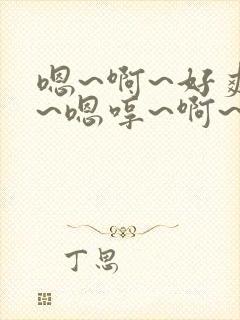 嗯~啊~好爽
~嗯哼~啊~
丁思